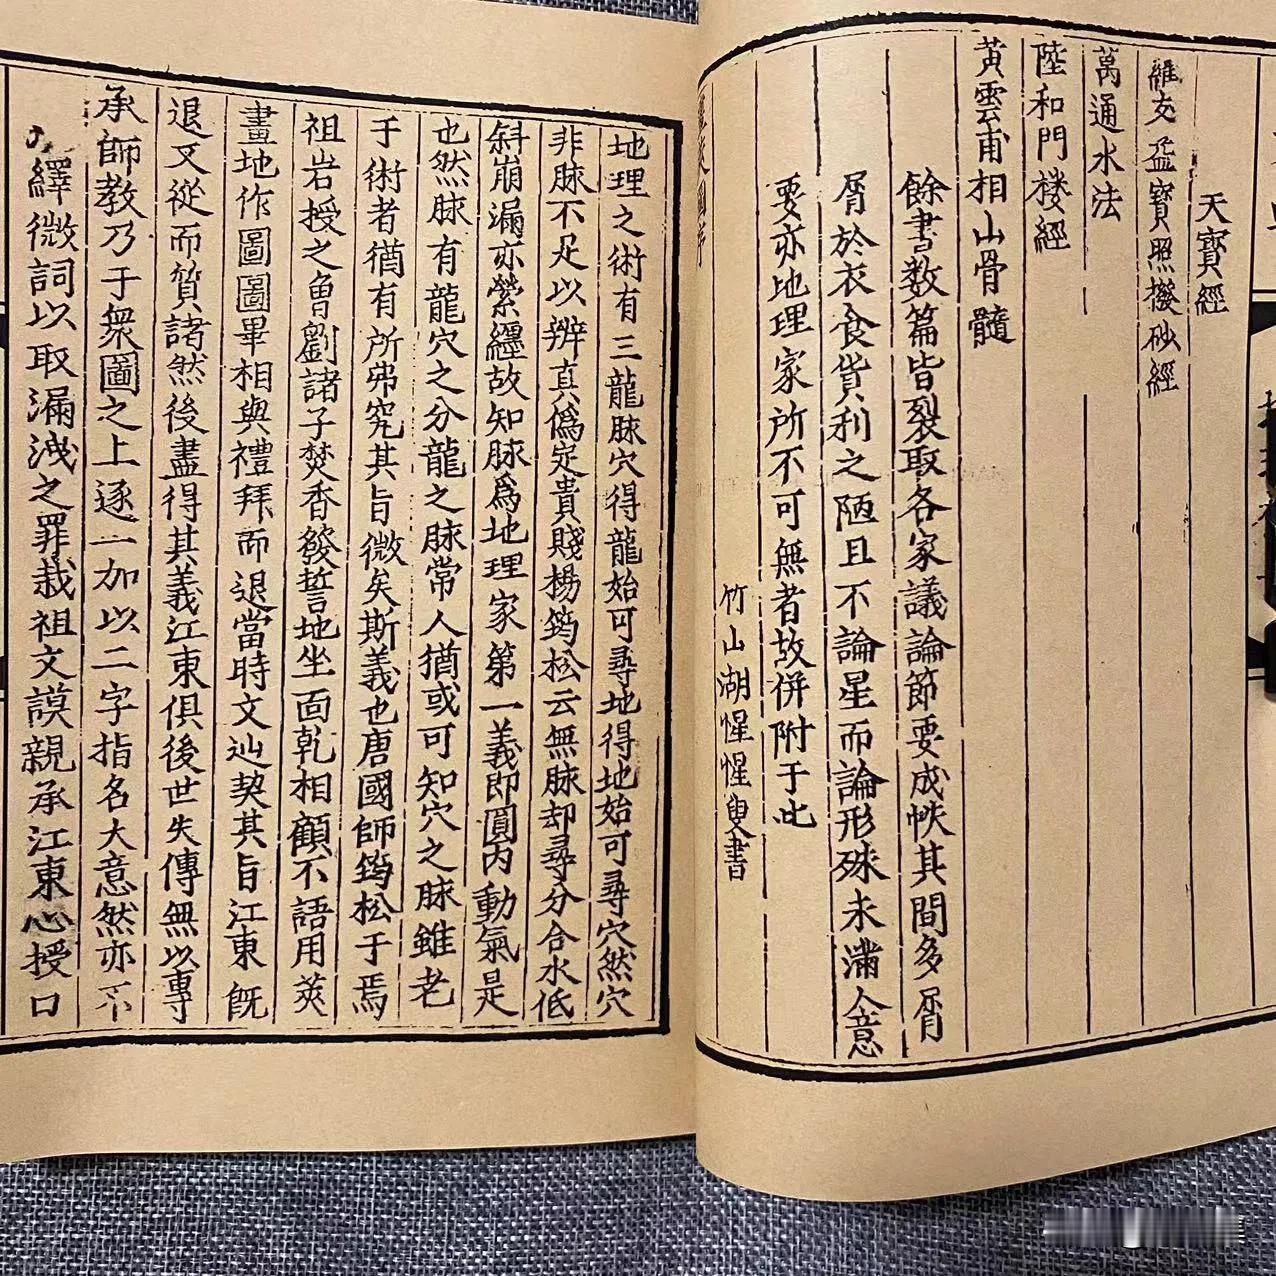 天寶經
羅文孟寶照撥砂經
萬通水法
陸和門楼經
黃雲甫相山骨髓
餘書数篇皆裂取各家議論節要成帙其間多屑
屑於衣食貨利之陋且不論星而論形殊未滿人意
要亦地理家所不可無者故併附于此
竹山湖惺惺叟書
地理之術有三龍脉穴得龍始可尋地得地始可尋穴然穴
非脉不足以辨真僞定貴賤楊筠松云無脉却尋分合水低
斜崩漏亦縈纒故知脉爲地理家第一義即圓內動氣是
也然脉有龍穴之分龍之脉常人猶或可知穴之脉雖老
于術者猶有所弗究其旨微矣斯義也唐國師筠松于焉
祖岩授之曾劉諸子焚香發誓地坐面乾相顧不語用筴
畫地作圖圖畢相與禮拜而退當時文辿契其旨江東旣
退又從而質諸然後盡得其義江東俱後世失傳無以專
承師教乃于衆圖之上逐一加以二字指名大意然亦不
繹微詞以取漏洩之罪哉祖文謨親承江東心授口